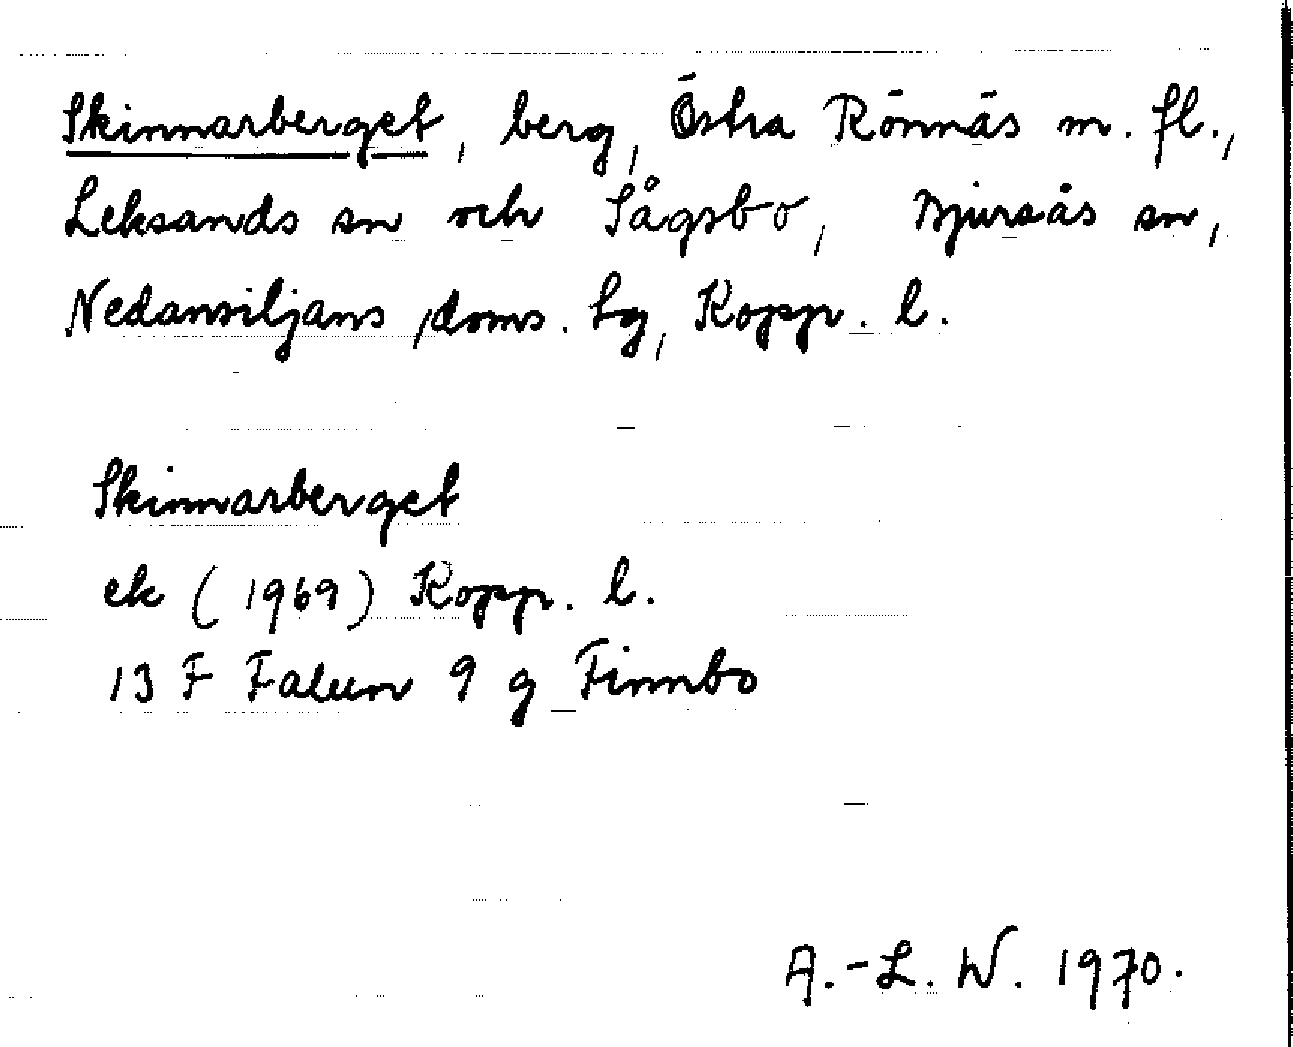 Skinnarberget, berg, Östra Rönnäs m. fl.,
Leksands sn och Sågsbo, Bjursås sn,
Nedansiljans doms. hg, Kopp. l.
Skinnarberget
ek (1969) Kopp. l.
13 F Falun 9 g Finnbo
A.-L. W. 1970.